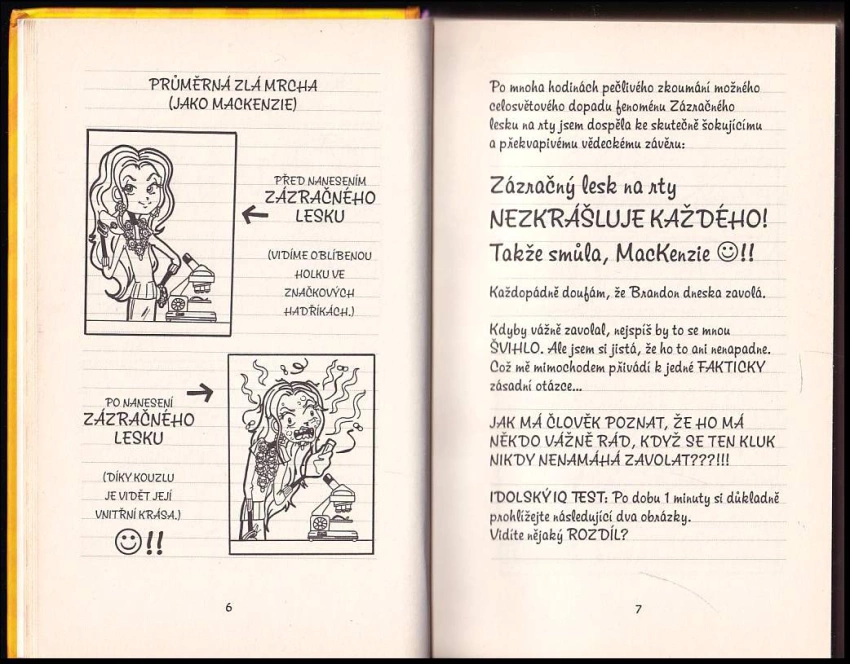 PRŮMĚRNÁ ZLÁ MRCHA
(JAKO MACKENZIE)
PŘED NANESENÍM
ZÁZRAČNÉHO
LESKU
(VIDÍME OBLÍBENOU
HOLKU VE
ZNAČKOVÝCH
HADŘÍKÁCH.)
PO NANESENÍ
ZÁZRAČNÉHO
LESKU
(DÍKY KOUZLU
JE VIDĚT JEJÍ
VNITŘNÍ KRÁSA.)
☺!!
6
Po mnoha hodinách pečlivého zkoumání možného
celosvětového dopadu fenoménu Zázračného
lesku na rty jsem dospěla ke skutečně šokujícímu
a překvapivému vědeckému závěru:
Zázračný lesk na rty
NEZKRÁŠLUJE KAŽDÉHO!
Takže smůla, MacKenzie ☺!!
Každopádně doufám, že Brandon dneska zavolá.
Kdyby vážně zavolal, nejspíš by to se mnou
ŠVIHLO. Ale jsem si jistá, že ho to ani nenapadne.
Což mě mimochodem přivádí k jedné FAKTICKY
zásadní otázce...
JAK MÁ ČLOVĚK POZNAT, ŽE HO MÁ
NĚKDO VÁŽNĚ RÁD, KDYŽ SE TEN KLUK
NIKDY NENAMÁHÁ ZAVOLAT???!!!
IDOLSKÝ IQ TEST: Po dobu 1 minuty si důkladně
prohlížejte následující dva obrázky.
Vidíte nějaký ROZDÍL?
7